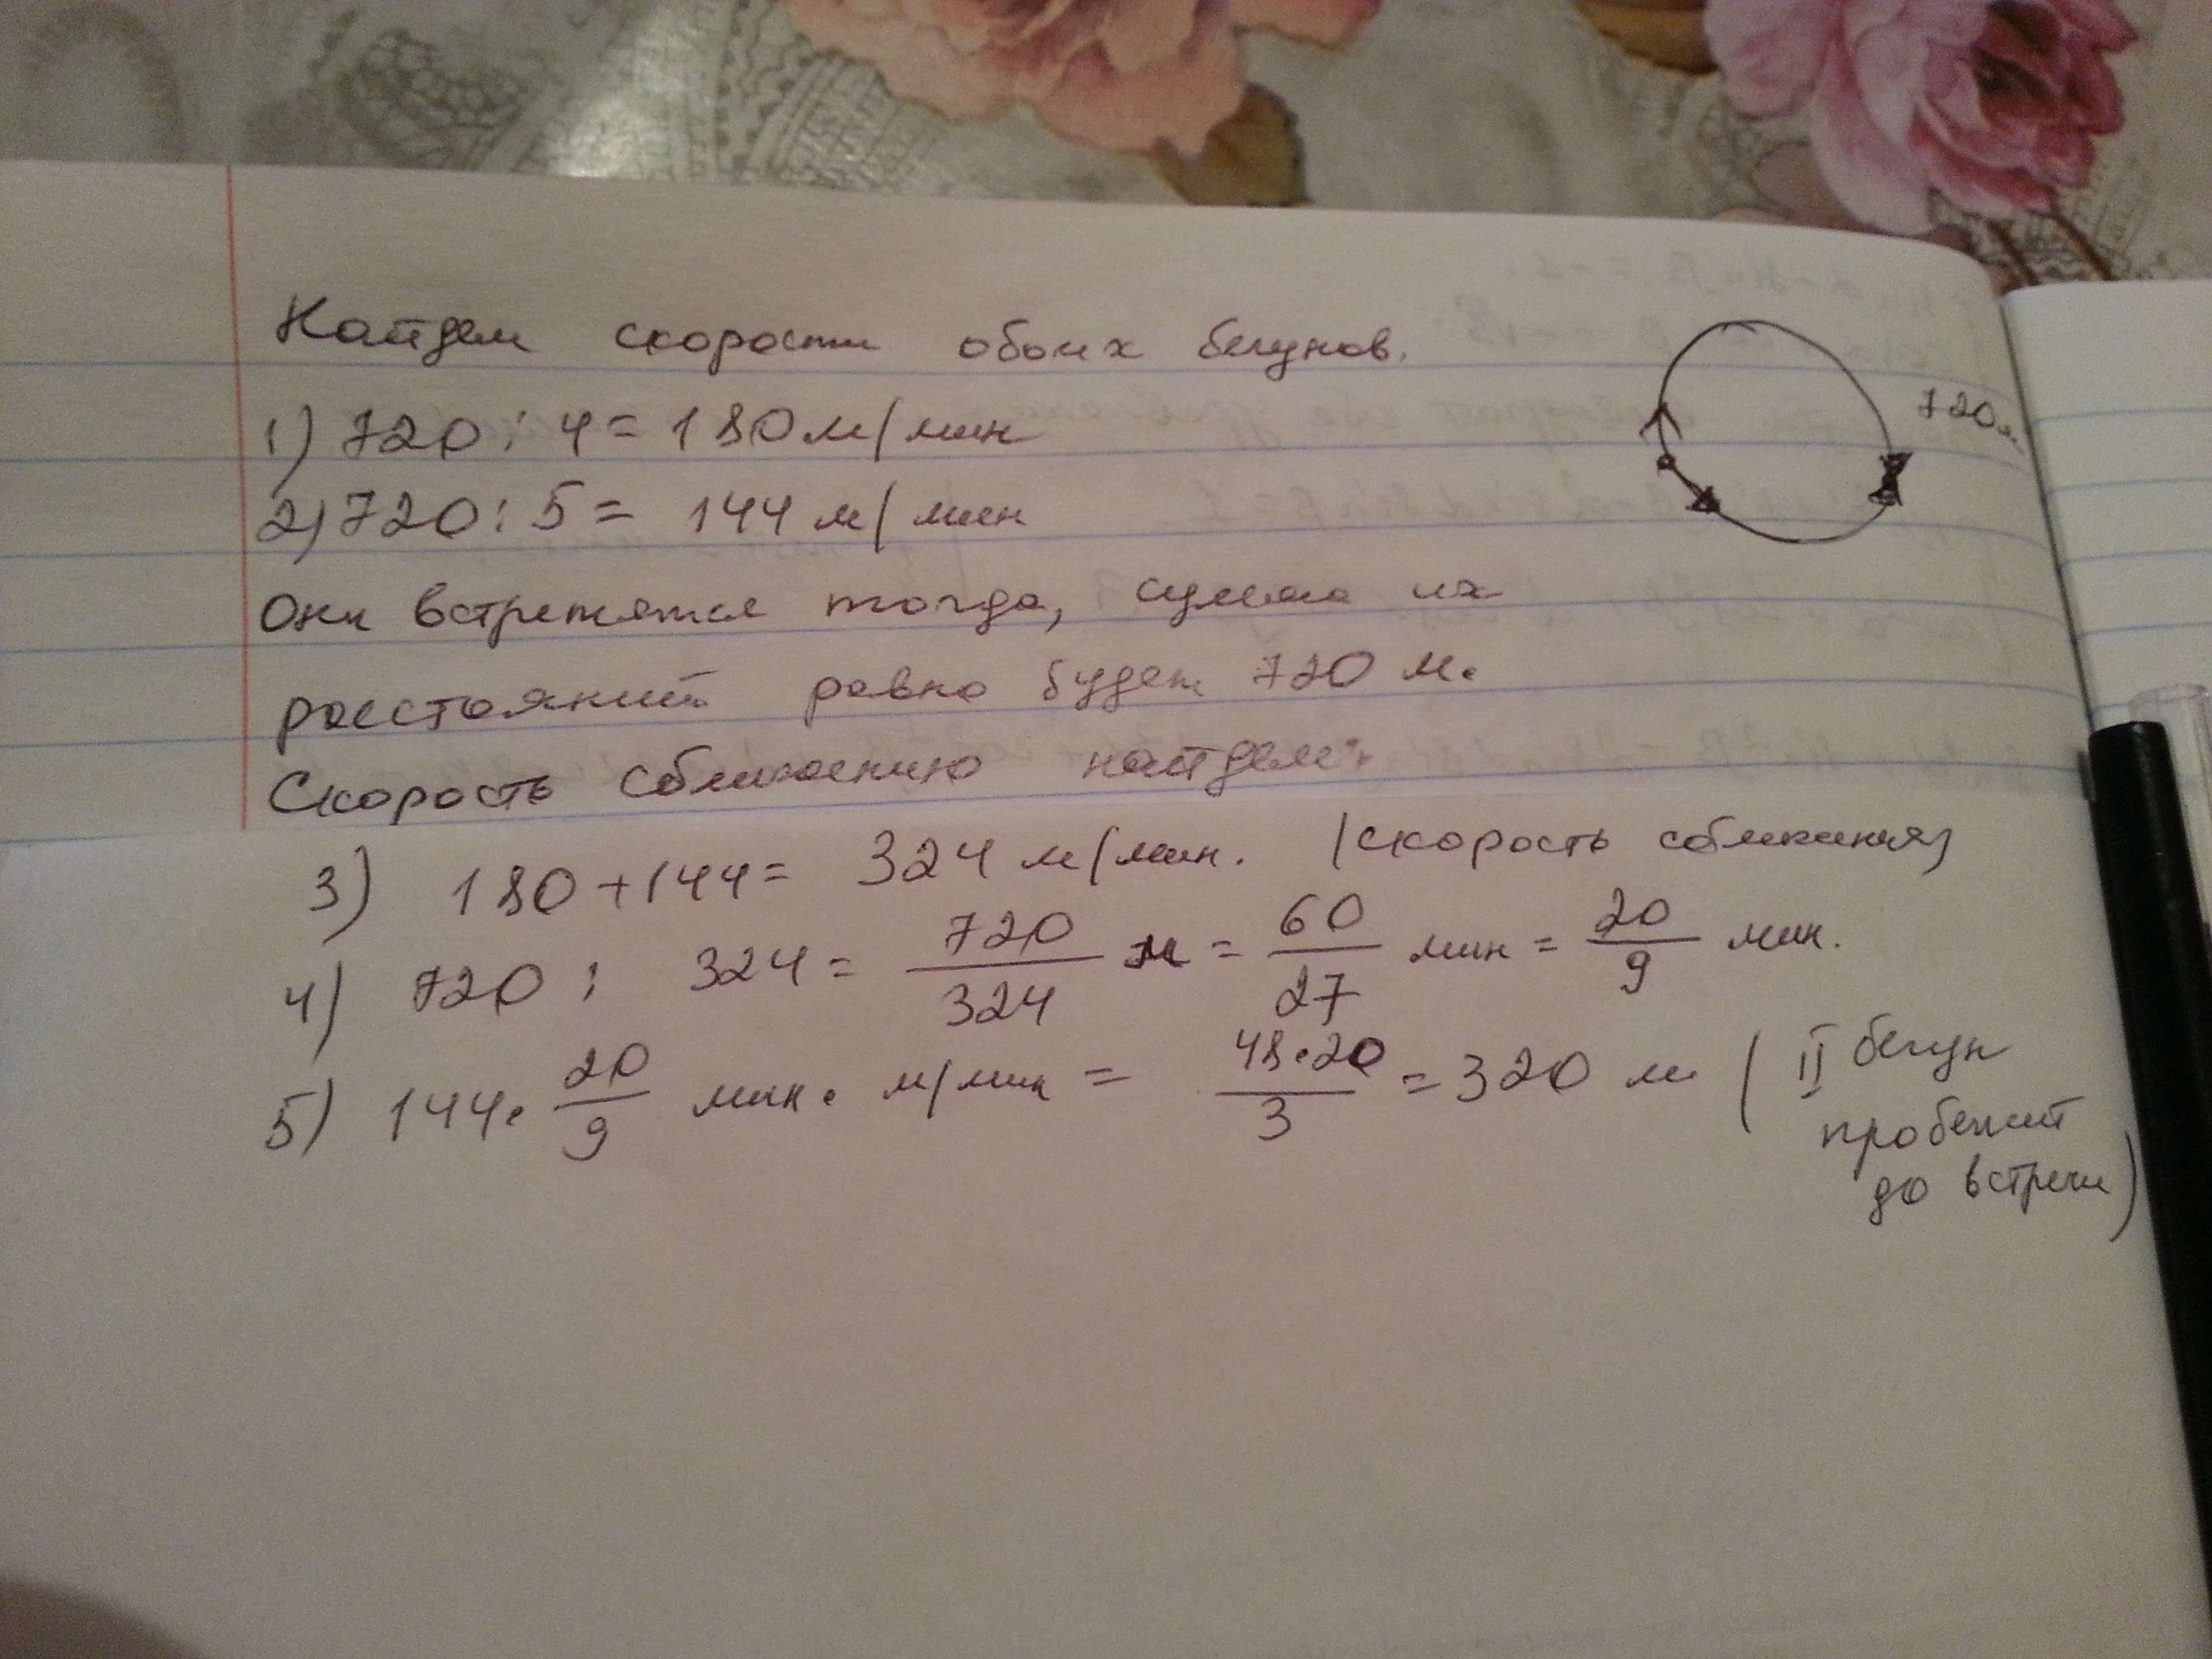 Найдем скорости обоих бегунов.
720 м.
1) 720 : 4 = 180 м/мин
2) 720 : 5 = 144 м/мин
Они встретятся тогда, сумма их
расстояний равно будет 720 м.
Скорость сближению найдем:
3) 180 + 144 = 324 м/мин. (скорость сближения)
4) 720 : 324 = 720/324 м = 60/27 мин = 20/9 мин.
5) 144 · 20/9 мин · м/мин = 48·20/3 = 320 м ( II бегун
пробежит
до встречи)